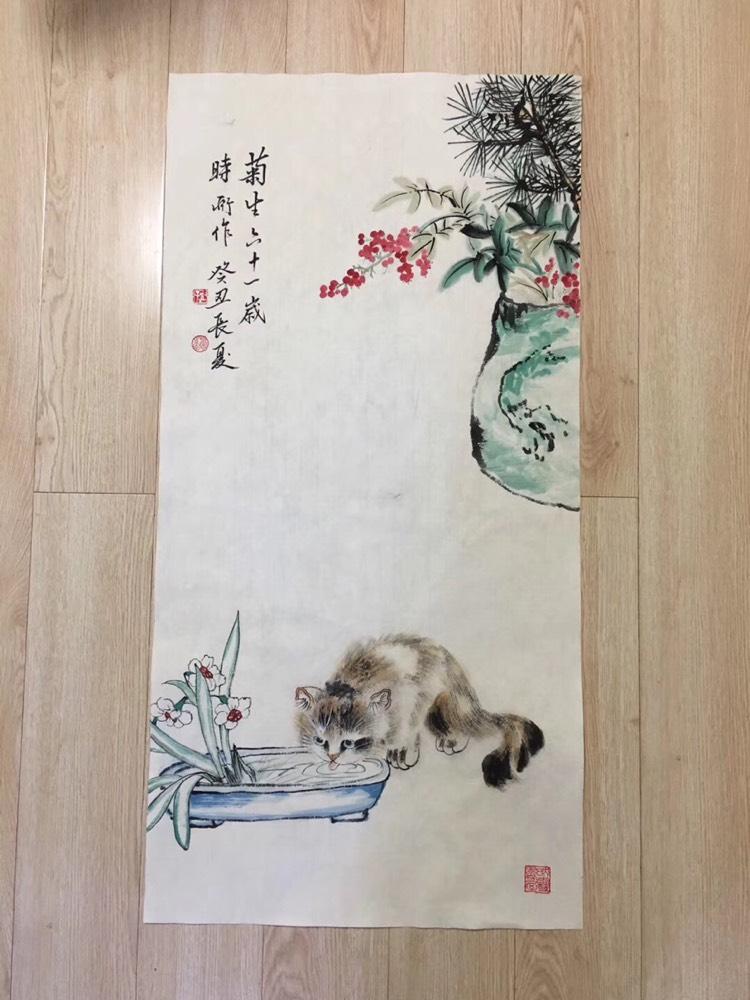 菊生六十一歲
時所作 癸丑長夏